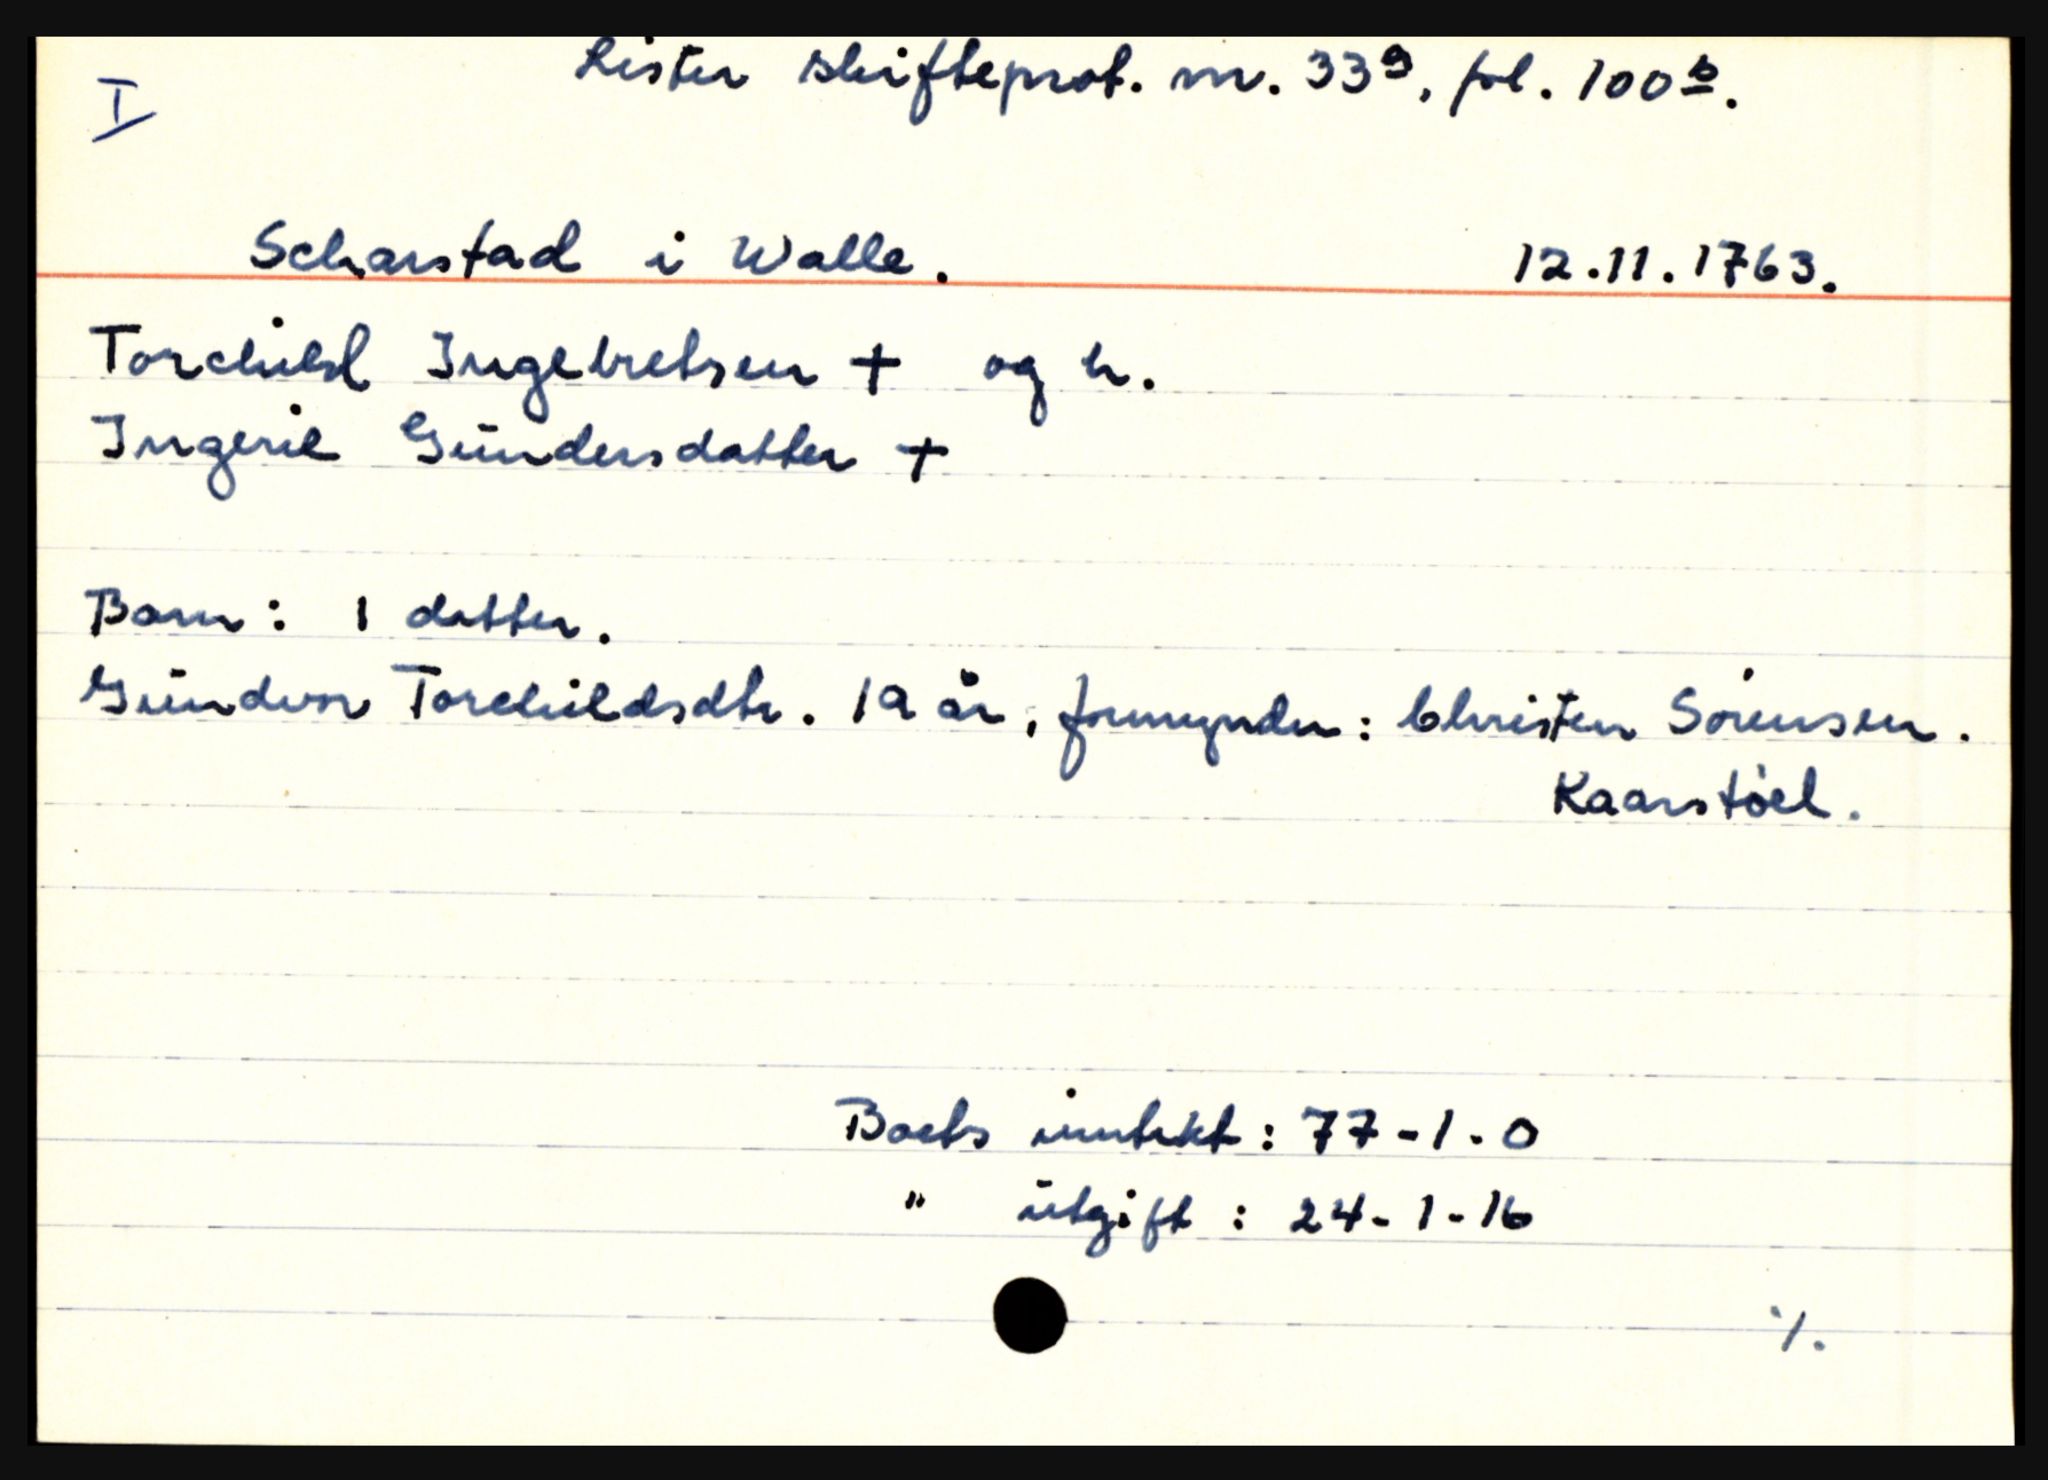 I
Lister skifteprot. nr. 33a, fol. 100b.
Scharstad i Walle. 12.11.1763.
Torchild Ingebretsen + og h.
Ingerie Gŭndersdatter +
Barn: 1 datter.
Gŭndvor Torchildsdtr. 19 år, formynder: Christen Sørensen.
Kaarstøel.
Boets inntekt: 77-1-0
" ŭtgift: 24-1-16
./.